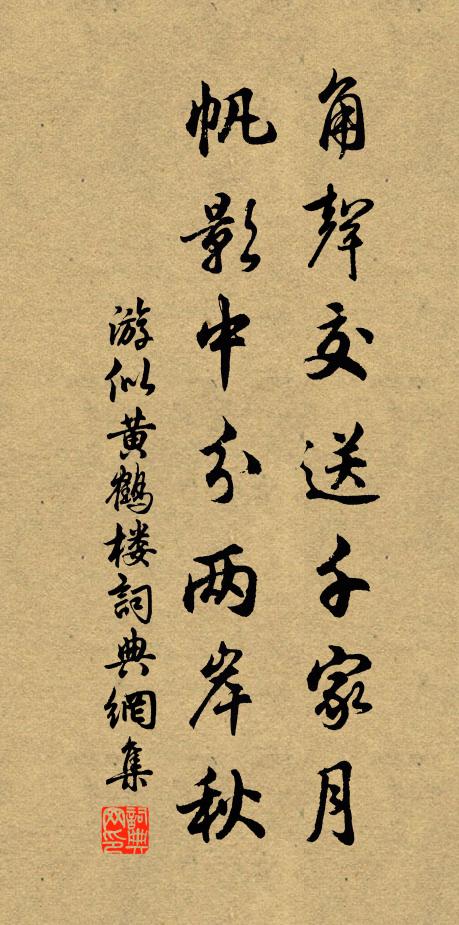 角聲交送千家月
帆影中分两岸秋
游似黄鶴楼詞典網集
詞典网印